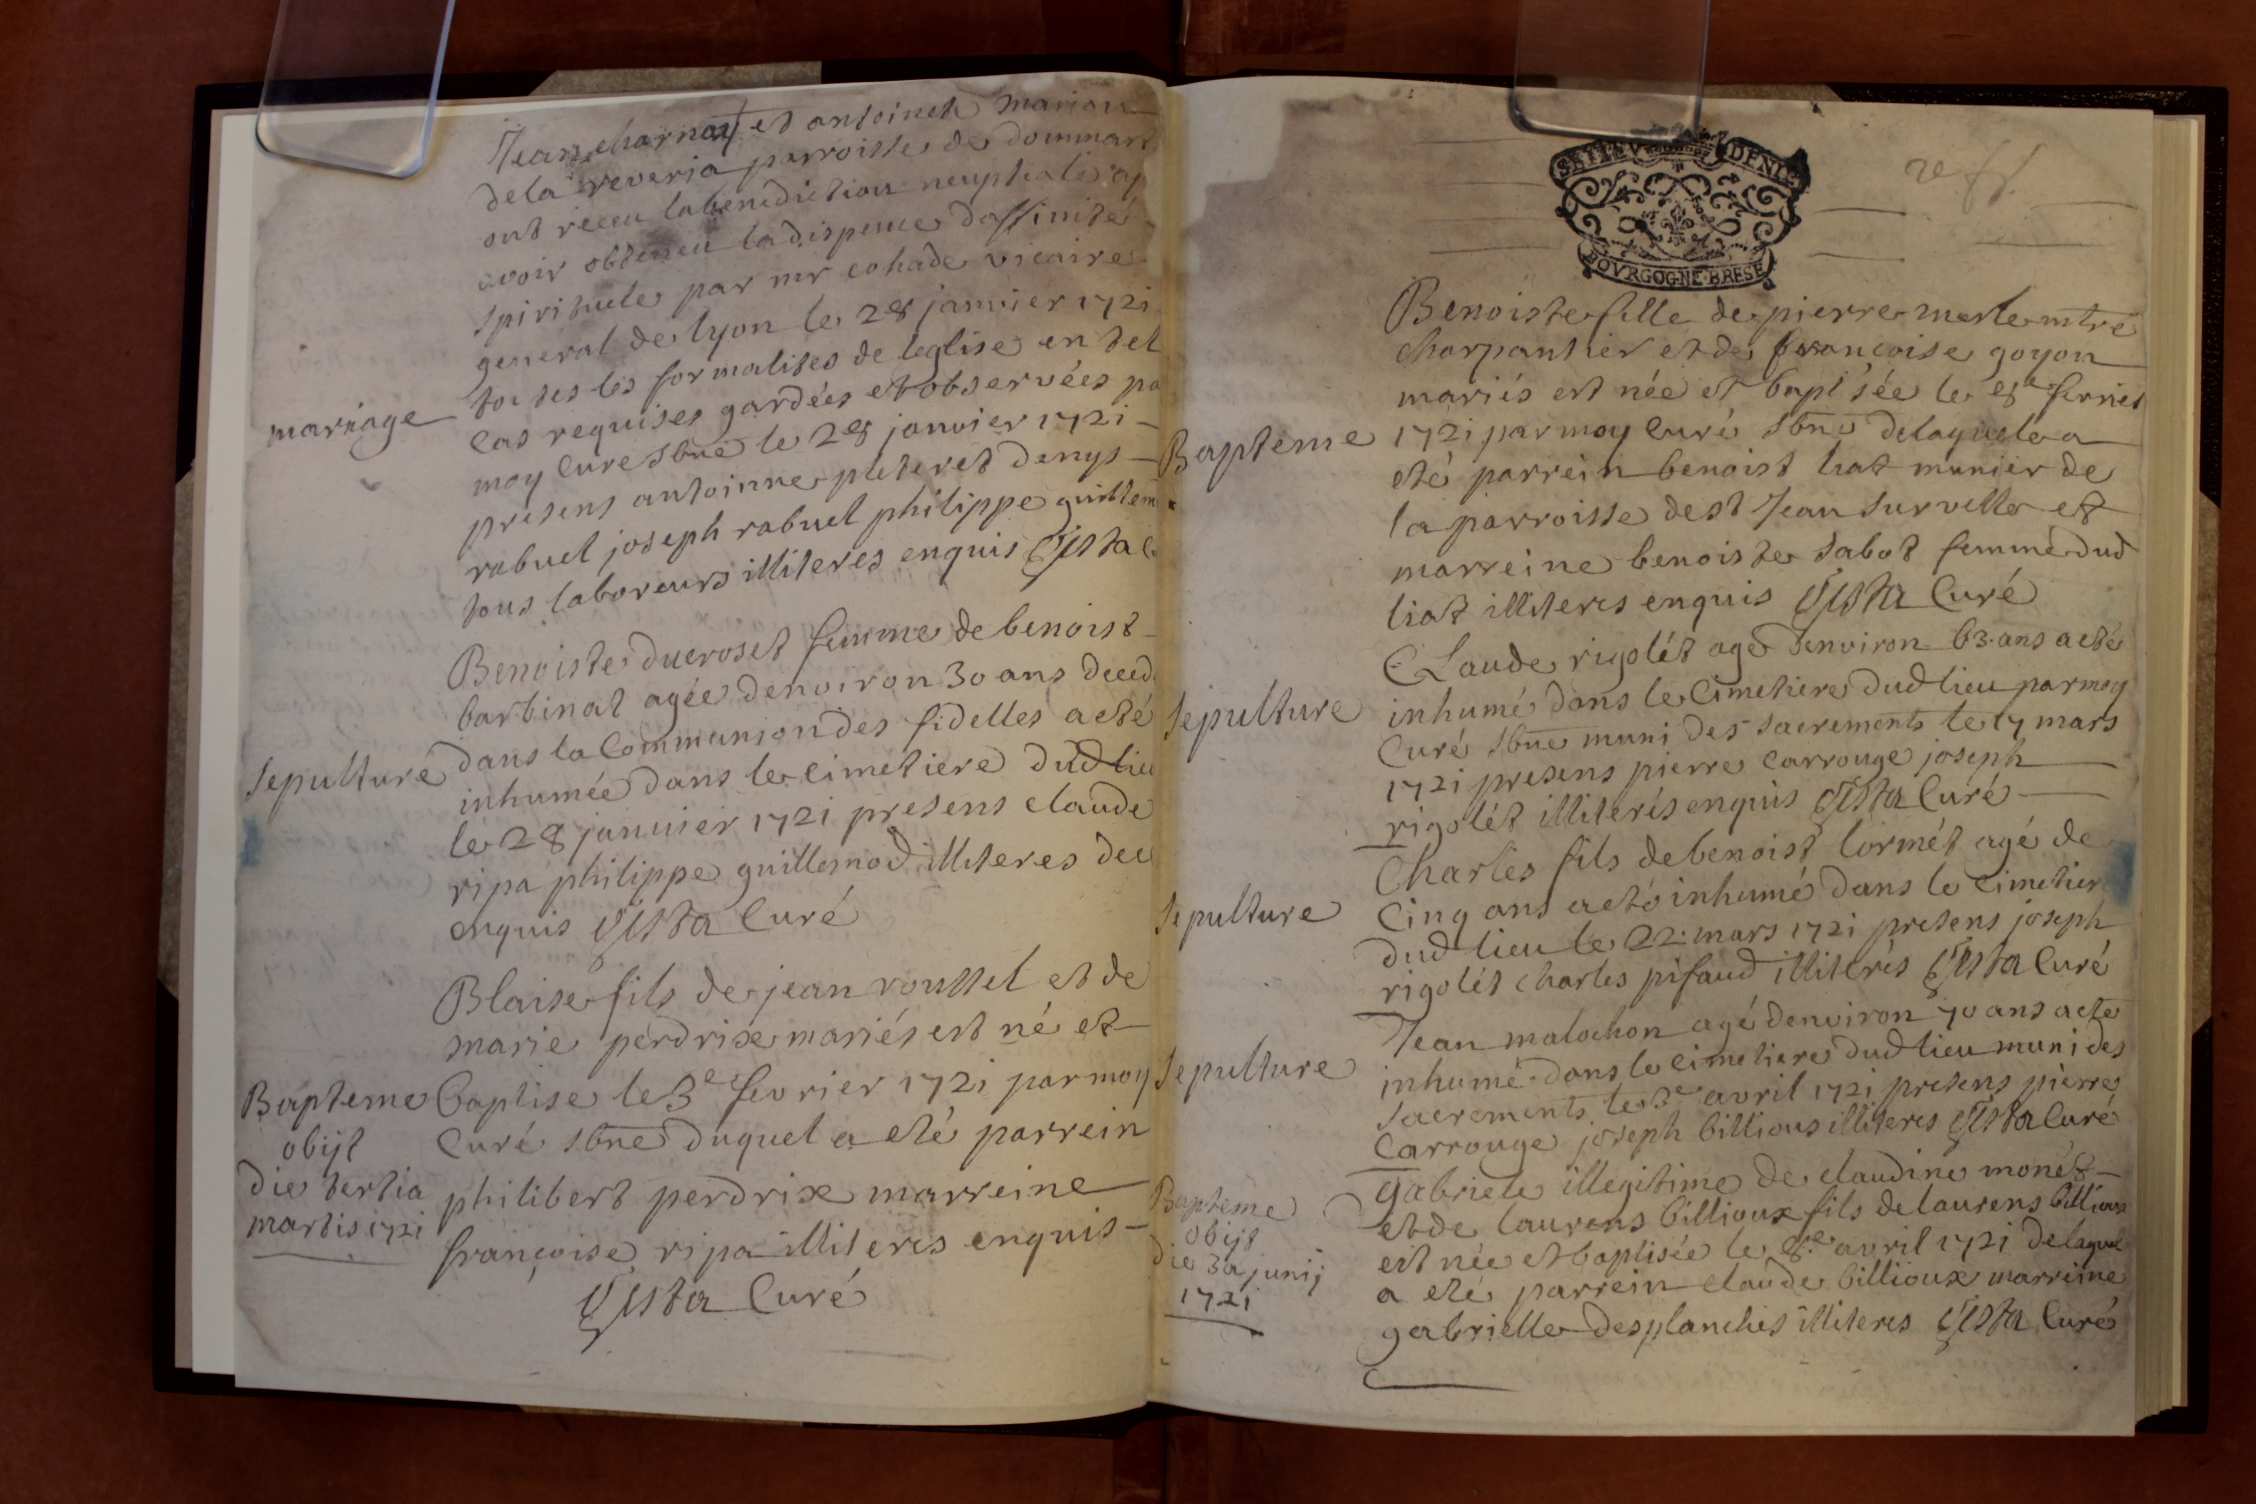 Jean charnay et antoinete marion
dela reveria parroisse de dommart
ont receu labenediction neuptiale ap
avoir obteneu ladispence daffinité
spirituele par mr cohade vicaire
general de lyon le 28 janvier 1721
toutes les formalites de leglise en tel
mariage
cas requises gardées et observées pa
moy curé sbné le 28 janvier 1721
presens antoinne pleteret denys
rabuel joseph rabuel philippe guillem
tous laboreurs illiteres enquis Vista C
Benoiste ducroset femme de benoist
barbinat agée denviron 30 ans deced
Sepulture
dans la Communion des fidelles a eté
inhumée dans le cimetiere dud lieu
le 28 janvier 1721 presens claude
ripa philippe guillemod illiteres de
enquis Vista Curé
Blaise fils de jean roussel et de
marie perdrix mariés est né et
Bapteme
baptise le 3e fevrier 1721 par moy
obijt
Curé sbné duquel a eté parrein
die tertia
philibert perdrix marreine
martis 1721
françoise ripa illiteres enquis
Vista Curé
SEIZE DENIE
BOVRGOGNE BRESE
Benoiste fille de pierre merle mtre
charpantier et de françoise goyon
mariés est née et baptisée le 8e fevrier
Bapteme
1721 par moy Curé sbné delaquele a
eté parrein benoist liat munier de
la parroisse de st Jean survelle et
marreine benoiste sabot femme dud
liat illiteres enquis Vista Curé
Claude rigolét agé denviron 63 ans a eté
Sepulture
inhumé dans le Cimetiere dud lieu par moy
Curé sbné muni des sacrements le 17 mars
1721 presens pierre carrouge joseph
rigolét illiterés enquis Vista Curé
Charles fils de benoist lormét agé de
Sepulture
Cinq ans a eté inhumé dans le Cimetiere
dud lieu le 22 mars 1721 presens joseph
rigolét charles pifaud illiterés Vista Curé
Jean malochon agé denviron 70 ans a eté
Sepulture
inhumé dans le cimetiere dud lieu muni des
sacrements le 3e avril 1721 presens pierre
Carrouge joseph billious illiteres Vista Curé
Gabriele illegitime de claudine monét
Bapteme
et de laurens billioux fils de laurens billioux
obijt
est née et baptisée le 8e avril 1721 delaquel
die 3a junij
a eté parrein claude billioux marreine
1721
gabrielle desplanches illiteres Vista Curé